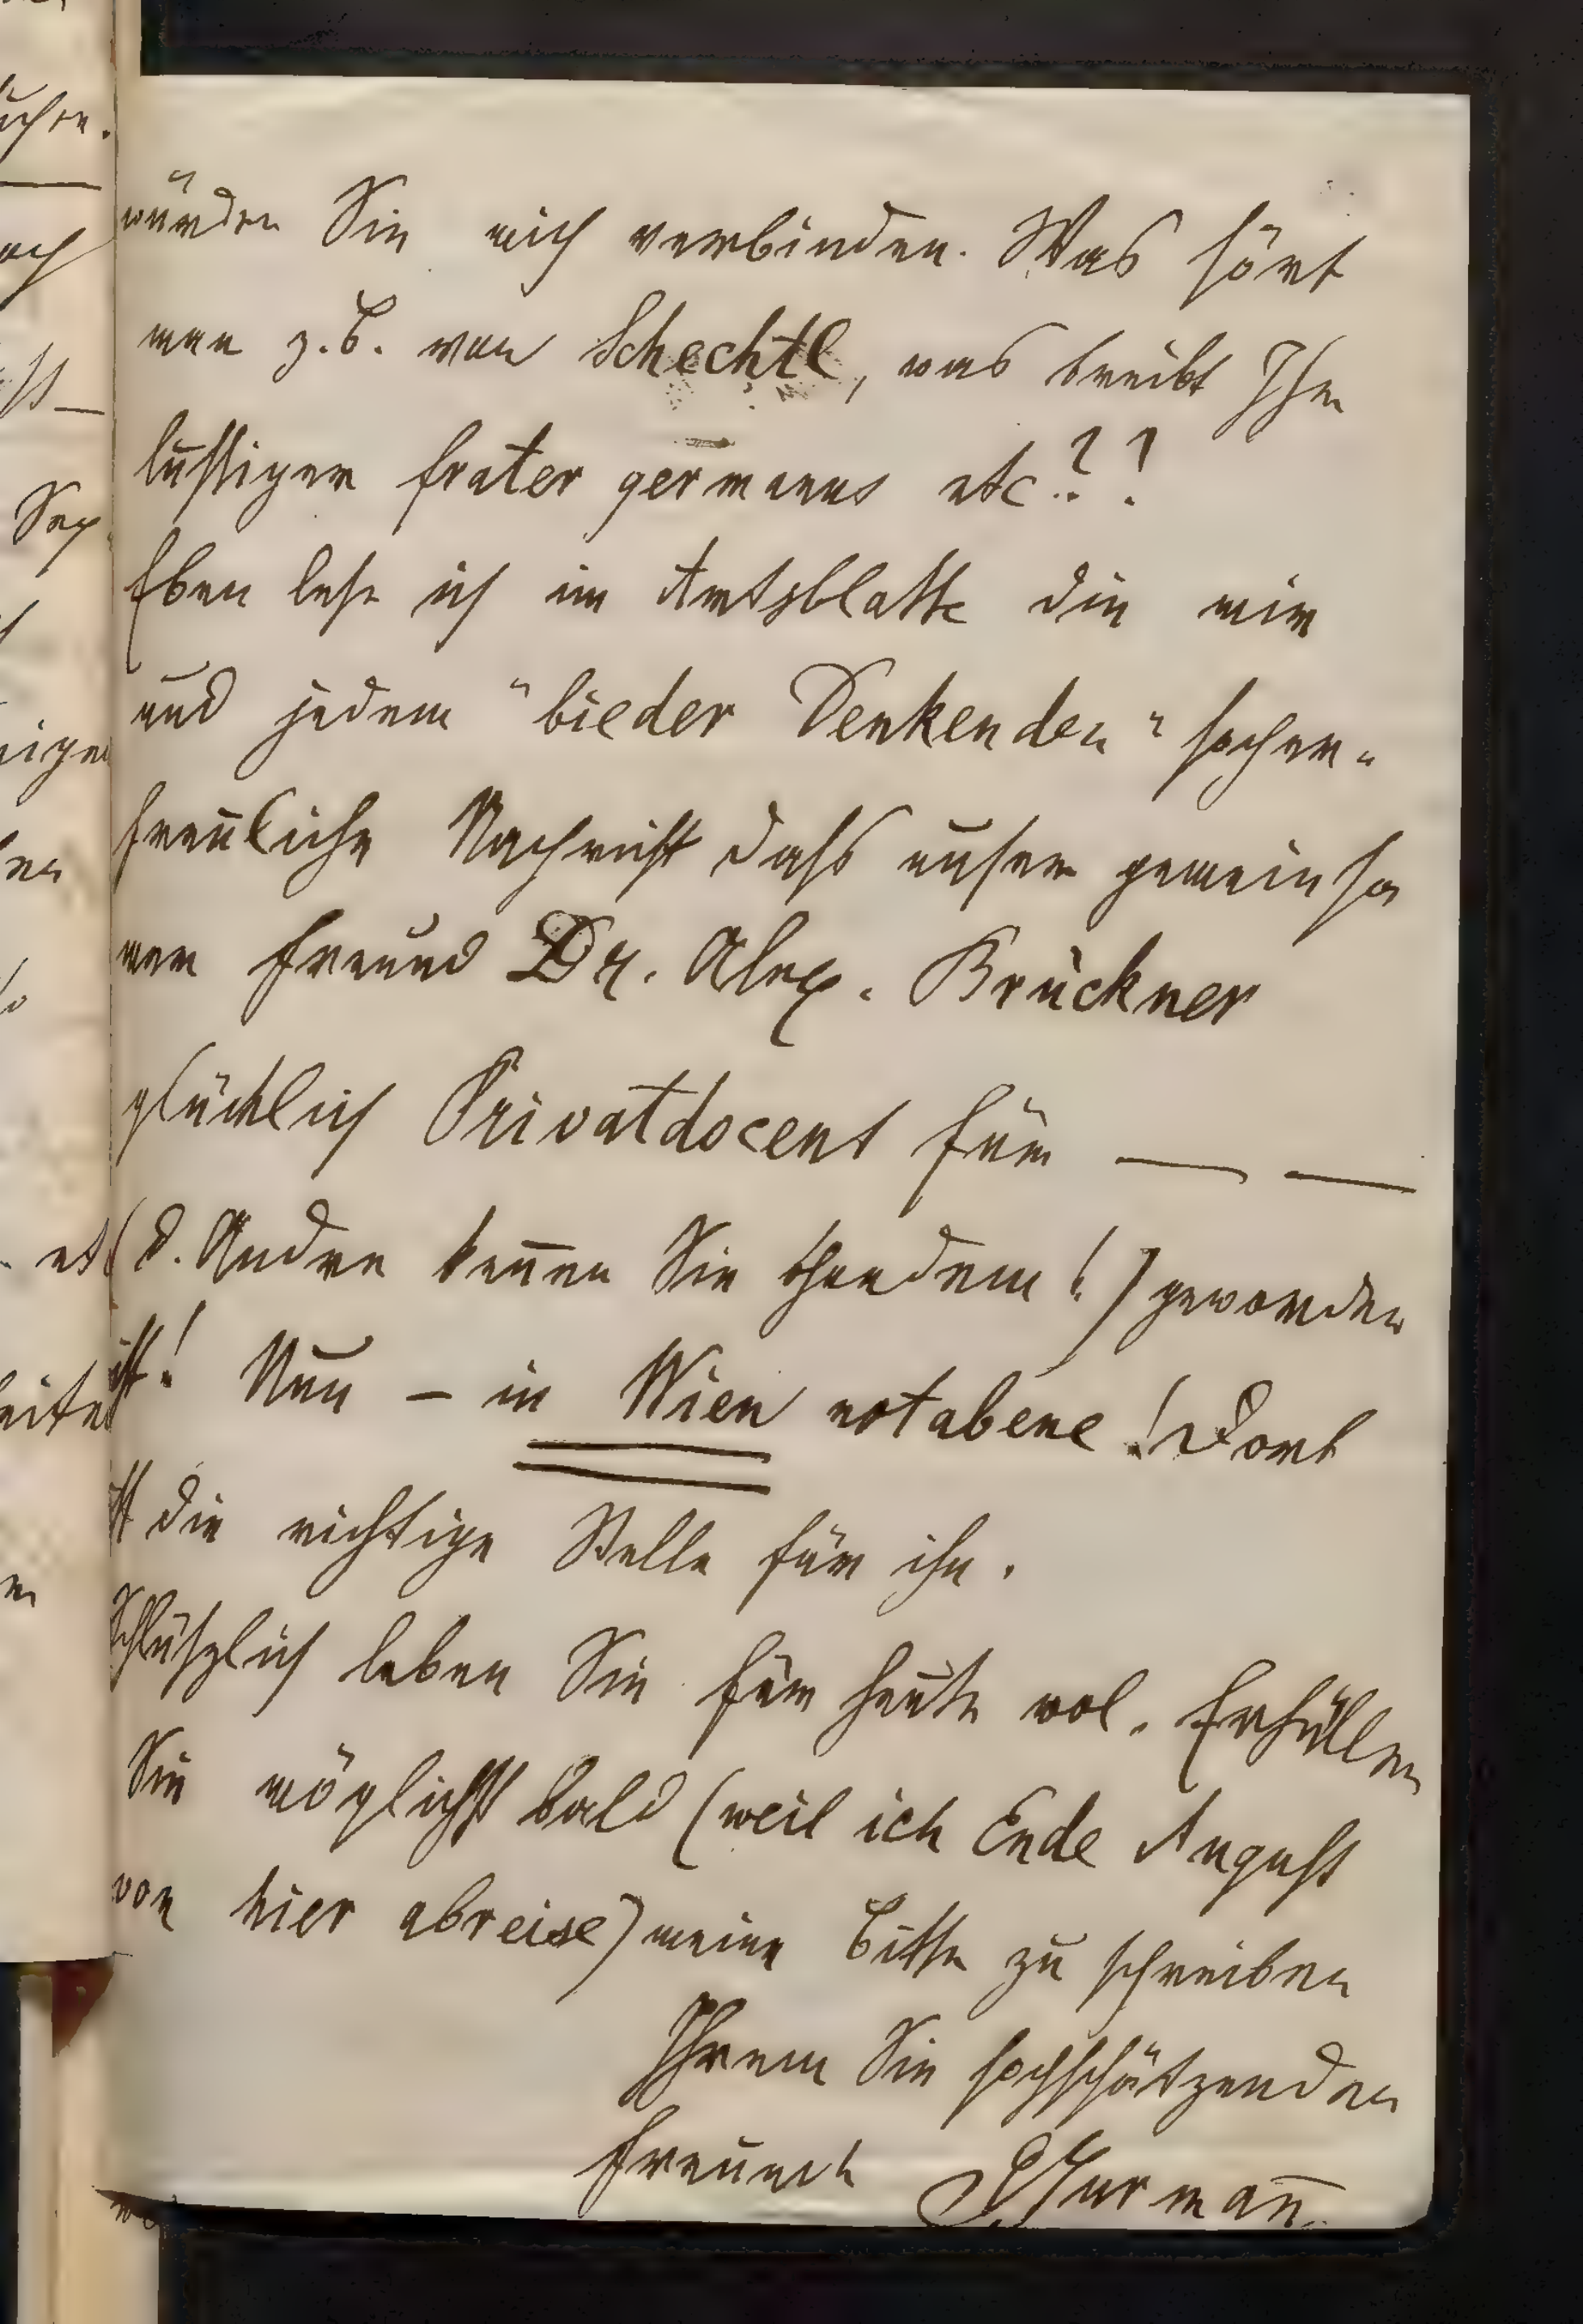 würden Sie mich verbinden. Was hört
man z.B. von Schechtl, was treibt Ihr
lustiger frater germanus etc??
Eben lese ich im Amtsblatte die mir
und jedem "bieder Denkenden" hocher-
freuliche Nachricht dass unser gemeinsa
mer Freund Dr. Alex. Brückner
glücklich Privatdocent für — —
(d. Andre kennen Sie ohnedem!) geworden
ist! Nun – in Wien notabene! Dort
ist die richtige Stelle für ihn.
Schlüszlich leben Sie für heute wol. Erfüllen
Sie möglichst bald (weil ich Ende August
von hier abreise) meine Bitte zu schreiben
Ihrem Sie hochschätzenden
Freunde